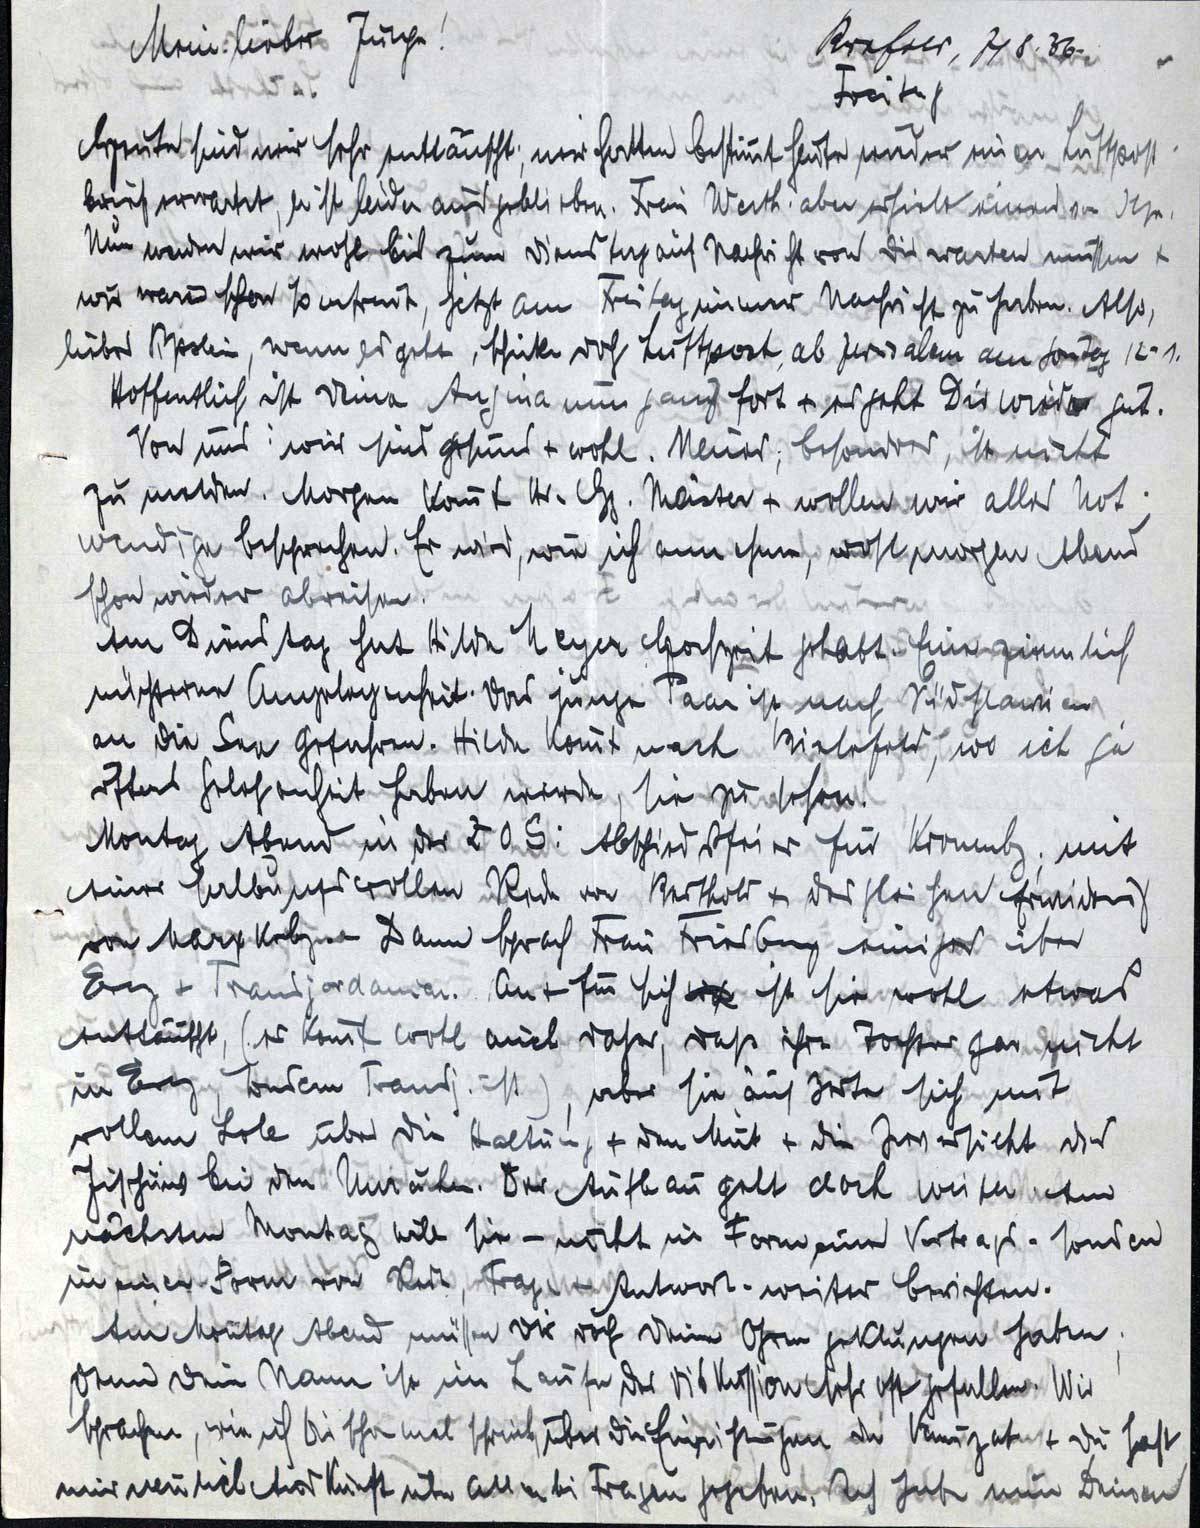 Mein lieber Junge!
Krefeld, 7/8. 36.
Freitag
Heute sind wir sehr enttäuscht, wir hatten bestimmt heute wieder einen Luftpost-
brief erwartet, er ist leider ausgeblieben. Frau Werth. aber erhielt einen von
Nun werden wir wohl bis zum Dienstag auf Nachricht von Dir warten müssen +
wir waren schon so erfreut, jetzt am Freitag immer Nachricht zu haben. Also,
lieber, wenn es geht, schicke doch Luftpost, ab Jerusalem am Sontag 12-1.
Hoffentlich ist Deine Angina nun ganz fort + es geht Dir wieder gut.
Von uns: wir sind gesund + wohl. Neues, besonders, ist nicht
zu melden. Morgen komt Hr. Gg. Meister + wollen wir alles Not-
wendige besprechen. Er wird, wie ich annehme, wohl morgen Abend
schon wieder abreisen.
Am Dienstag hat Hilde Meyer Hochzeit gehabt. Eine ziemlich
nüchterne Angelegenheit. Das junge Paar ist nach Südslavien
an die See gefahren. Hilde komt nach Bielefeld, wo ich ja
öfters Gelegenheit haben werde, sie zu sehen.
Montag Abend in der Z O G: Abschiedsfeier für Kronenbg. mit
einer salbungsvollen Rede von Berthold + desgleichen Erwiderg
von Marx Dann sprach Frau Friedberg einiges über
Erez + Transjordanien. An + für sich ist sie wohl etwas
enttäuscht, (es komt wohl auch daher, dass ihre Tochter gar nicht
in Erez, sondern Transj. ist), aber sie äusserte sich mit
vollem Lobe über die Haltung + den Mut + die Zuversicht des
Jischuws bei den Unruhen. Der Aufbau geht doch weiter. Am
nächsten Montag will sie - nicht in Form eines Vortrags - sondern
in einer Form von Rede, Frage + Antwort - weiter berichten.
Am Montag Abend müssen Dir doch Deine Ohren geklungen haben,
denn Dein Name ist im Laufe der Diskussion sehr oft gefallen. Wir
sprachen, wie ich Dir schon mal schrieb, über die Einrichtungen der Kwuzah + Du hast
mir neulich Auskunft über allerlei Fragen gegeben. Ich habe nun Deinen